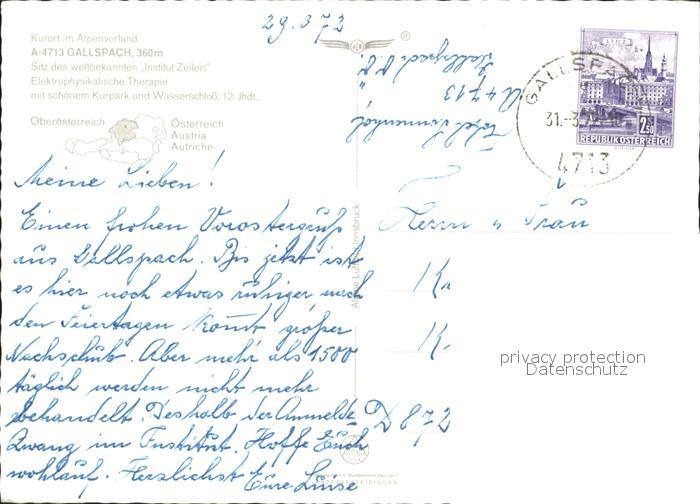 29.3.72
Kurort im Alpenvorland
A-4713 GALLSPACH, 360m
Sitz des weltbekannten „Institut Zeileis"
Elektrophysikalische Therapie
mit schönem Kurpark und Wasserschloß, 12. Jhdt.
Oberösterreich
Österreich
Austria
Autriche
Meine Lieben!
Einen frohen Vorostergruß
aus Gallspach. Bis jetzt ist
es hier noch etwas ruhiger nach
den Feiertagen kommt großer
Nachschub. Aber mehr als 1500
täglich werden nicht mehr
behandelt. Deshalb der Anmelde-
Zwang im Institut. Hoffe Euch
wohlauf. Herzlichst
Eure Luise
A 4713
Gallspach O.Ö.
LINZ
GALLSPACH
31.-3.72-18
4713
2.50
REPUBLIK ÖSTERREICH
Herrn u Frau
K.
K.
D 872
privacy protection
Datenschutz